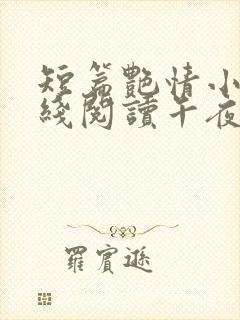 短篇艷情小
綫閱讀午夜
羅賓遜